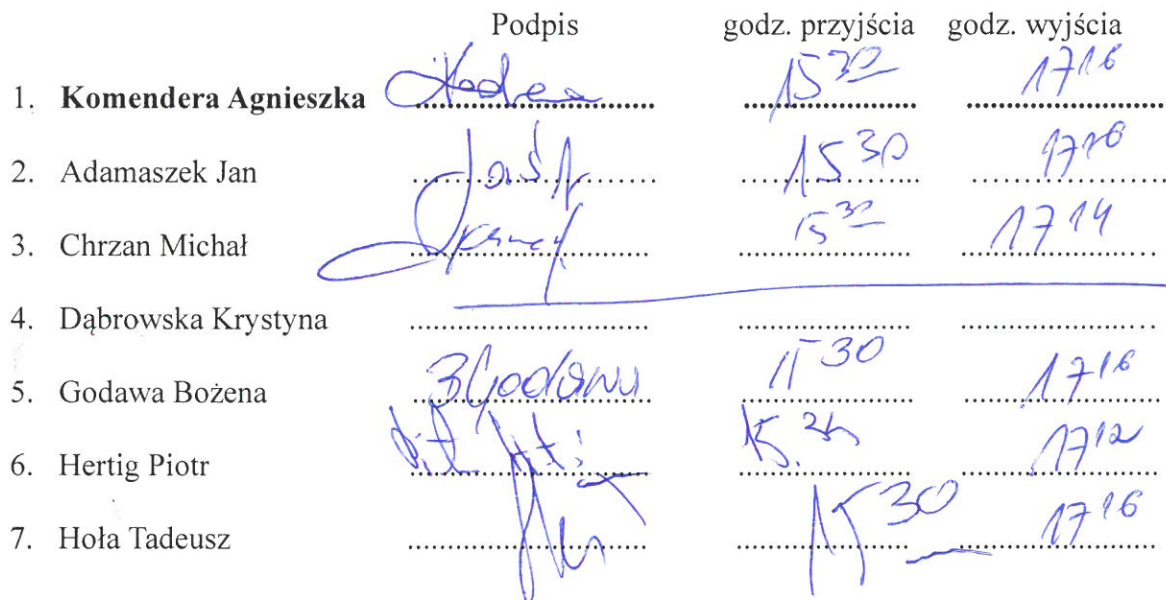 Podpis godz. przyjścia godz. wyjścia
1. Komendera Agnieszka 15 30 17 16
2. Adamaszek Jan 15 30 17 16
3. Chrzan Michał 15 30 17 14
4. Dąbrowska Krystyna
5. Godawa Bożena BGodawa 15 30 17 16
6. Hertig Piotr 17 12
7. Hoła Tadeusz 15 30 17 16